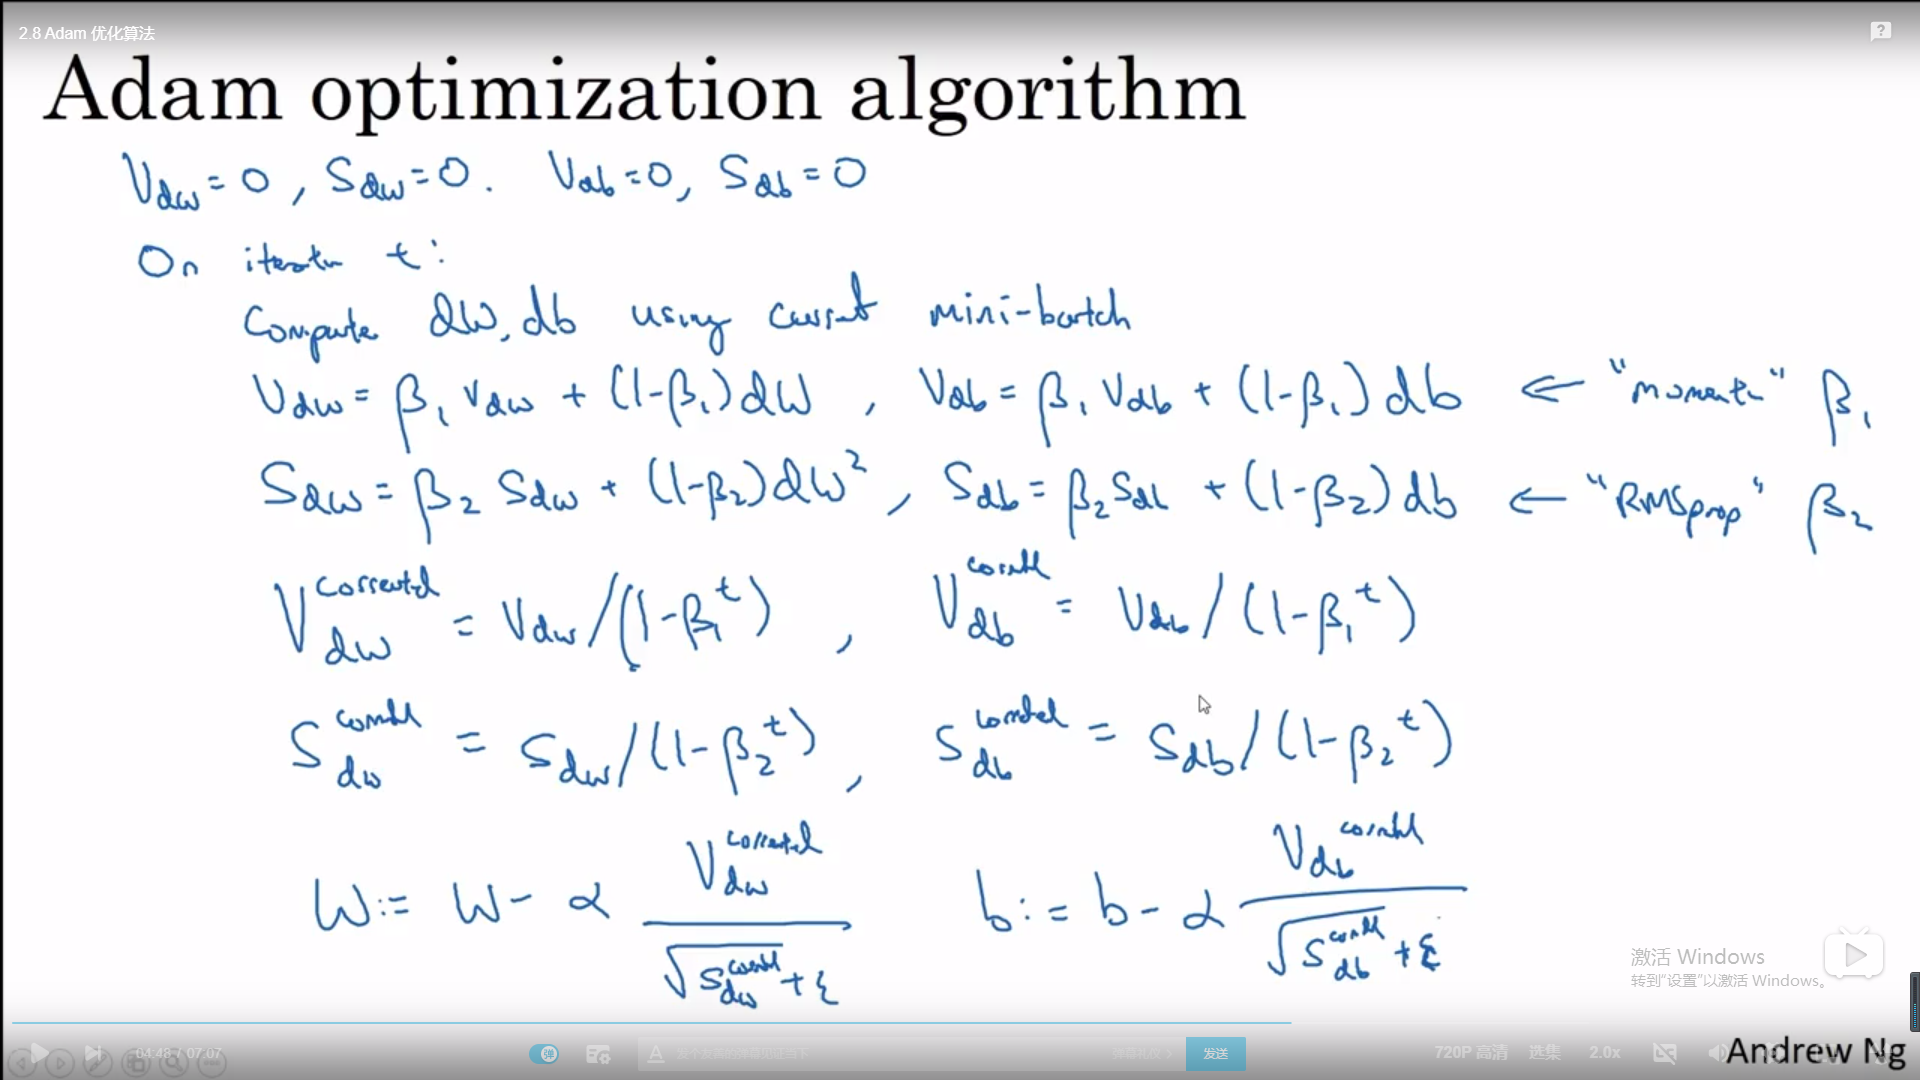 2.8 Adam 优化算法
Adam optimization algorithm
V_dw = 0, S_dw = 0. V_db = 0, S_db = 0
On iteratn t:
Compute dW, db using current mini-batch
V_dw = β₁ V_dw + (1-β₁) dW , V_db = β₁ V_db + (1-β₁) db ← "moment" β₁
S_dw = β₂ S_dw + (1-β₂) dW² , S_db = β₂ S_db + (1-β₂) db ← "RMSprop" β₂
V_dw^corrected = V_dw / (1-β₁^t) , V_db^corrected = V_db / (1-β₁^t)
S_dw^corrected = S_dw / (1-β₂^t) , S_db^corrected = S_db / (1-β₂^t)
W := W - α V_dw^corrected / (√S_dw^corrected + ε) b := b - α V_db^corrected / (√S_db^corrected + ε)
激活 Windows
转到“设置”以激活 Windows。
04:48 / 07:07
弹
发个友善的弹幕见证当下
弹幕礼仪 >
发送
720P 高清
选集
2.0x
Andrew Ng